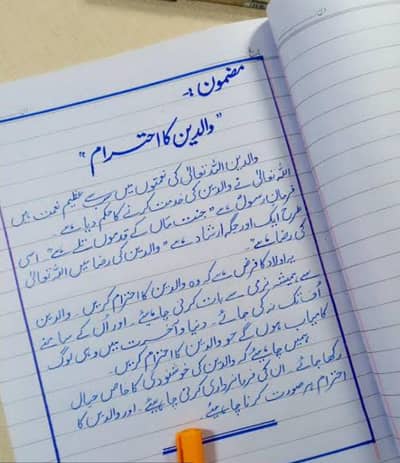 مضمون :-
"والدین کا احترام"
والدین اللہ تعالیٰ کی نعمتوں میں سے عظیم نعمت ہیں
اللہ تعالیٰ نے والدین کی خدمت کرنے کا حکم دیا ہے
فرمانِ رسولؐ ہے "جنت ماں کے قدموں تلے ہے" اسی
طرح ایک اور جگہ ارشاد ہے "والدین کی رضا میں اللہ تعالیٰ
کی رضا ہے"
ہر اولاد کا فرض ہے کہ وہ والدین کا احترام کریں۔ والدین
سے ہمیشہ نرمی سے بات کرنی چاہیئے۔ اور اُن کے سامنے
اُف تک نہ کی جائے۔ دنیا و آخرت میں وہی لوگ
کامیاب ہوں گے جو والدین کا احترام کریں۔
ہمیں چاہیئے کہ والدین کی خوشنودی کا خاص خیال
رکھا جائے۔ ان کی فرمانبرداری کرنی چاہیئے۔ اور والدین کا
احترام ہر صورت کرنا چاہیئے۔